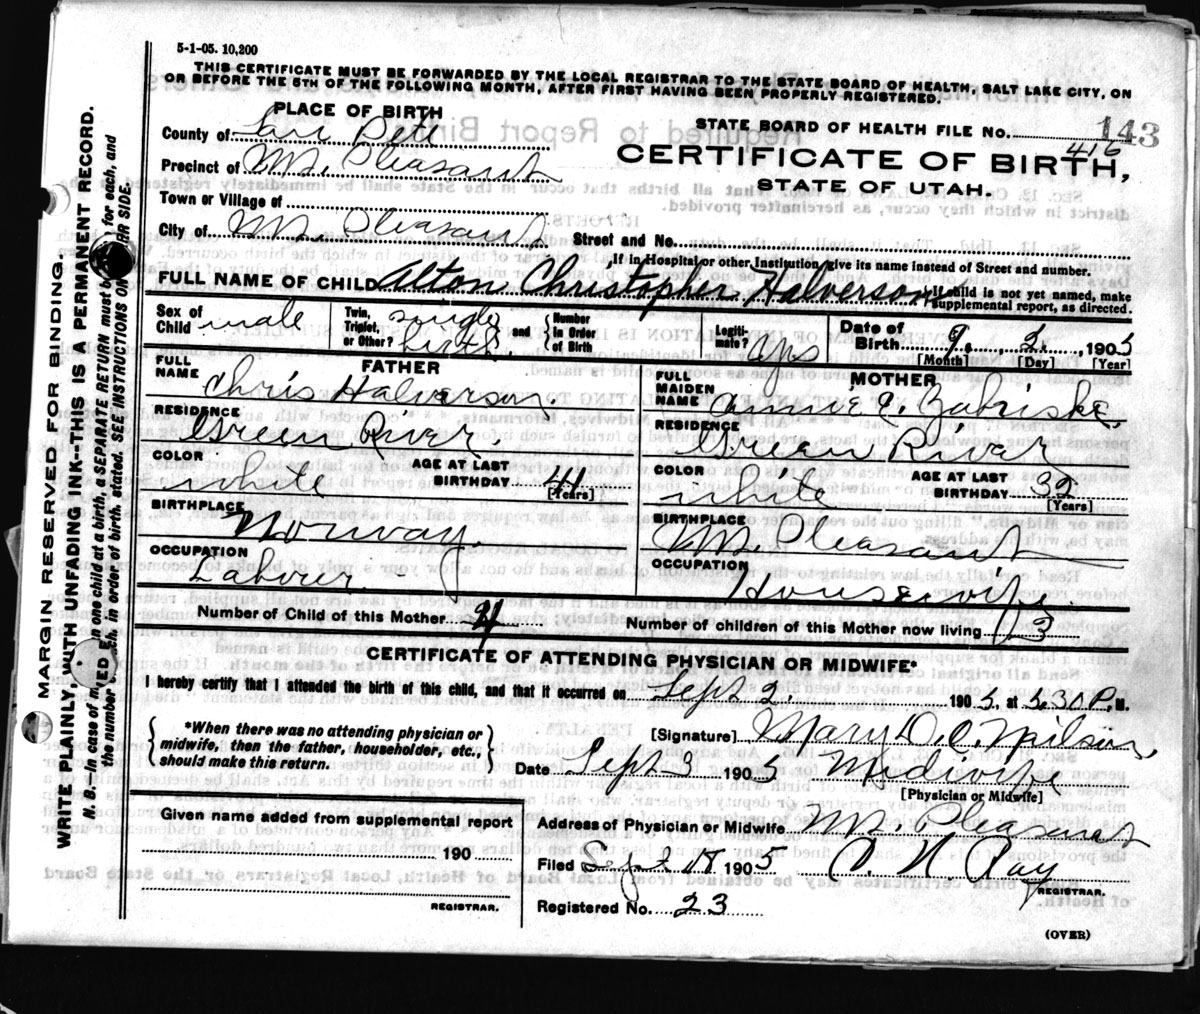 5-1-05. 10,200
THIS CERTIFICATE MUST BE FORWARDED BY THE LOCAL REGISTRAR TO THE STATE BOARD OF HEALTH, SALT LAKE CITY, ON
OR BEFORE THE 5TH OF THE FOLLOWING MONTH, AFTER FIRST HAVING BEEN PROPERLY REGISTERED.
PLACE OF BIRTH
STATE BOARD OF HEALTH FILE NO. 143
416
County of San Pete
CERTIFICATE OF BIRTH,
Precinct of Mt. Pleasant
STATE OF UTAH.
Town or Village of
City of Mt. Pleasant Street and No.
If in Hospital or other Institution give its name instead of Street and number.
FULL NAME OF CHILD Alton Christopher Halverson If child is not yet named, make supplemental report, as directed.
Sex of Child male Twin, Triplet, or Other? single birth. and Number in Order of Birth Legitimate? yes Date of Birth 9. 2. 1905
[Month] [Day] [Year]
FATHER
FULL NAME Chris Halverson.
RESIDENCE Green River.
COLOR white AGE AT LAST BIRTHDAY 41 [Years]
BIRTHPLACE Norway.
OCCUPATION Labourer
MOTHER
FULL MAIDEN NAME Annie E. Zabriske.
RESIDENCE Green River
COLOR white AGE AT LAST BIRTHDAY 32 [Years]
BIRTHPLACE Mt. Pleasant
OCCUPATION Housewife.
Number of Child of this Mother 4 Number of children of this Mother now living 3
CERTIFICATE OF ATTENDING PHYSICIAN OR MIDWIFE*
I hereby certify that I attended the birth of this child, and that it occurred on Sept 2. 1905, at 5.30 P. M.
*When there was no attending physician or
midwife, then the father, householder, etc.,
should make this return.
[Signature] Mary D. C. Wilson.
Date Sept 3 1905 Midwife
[Physician or Midwife]
Given name added from supplemental report
190
REGISTRAR.
Address of Physician or Midwife Mt. Pleasant
Filed Sep 1905 Ray
REGISTRAR.
Registered No. 23
(OVER)
MARGIN RESERVED FOR BINDING.
WRITE PLAINLY, WITH UNFADING INK--THIS IS A PERMANENT RECORD.
N. B.--In case of more than one child at a birth, a SEPARATE RETURN must be for each, and
the number in order of birth, stated. SEE INSTRUCTIONS ON SIDE.